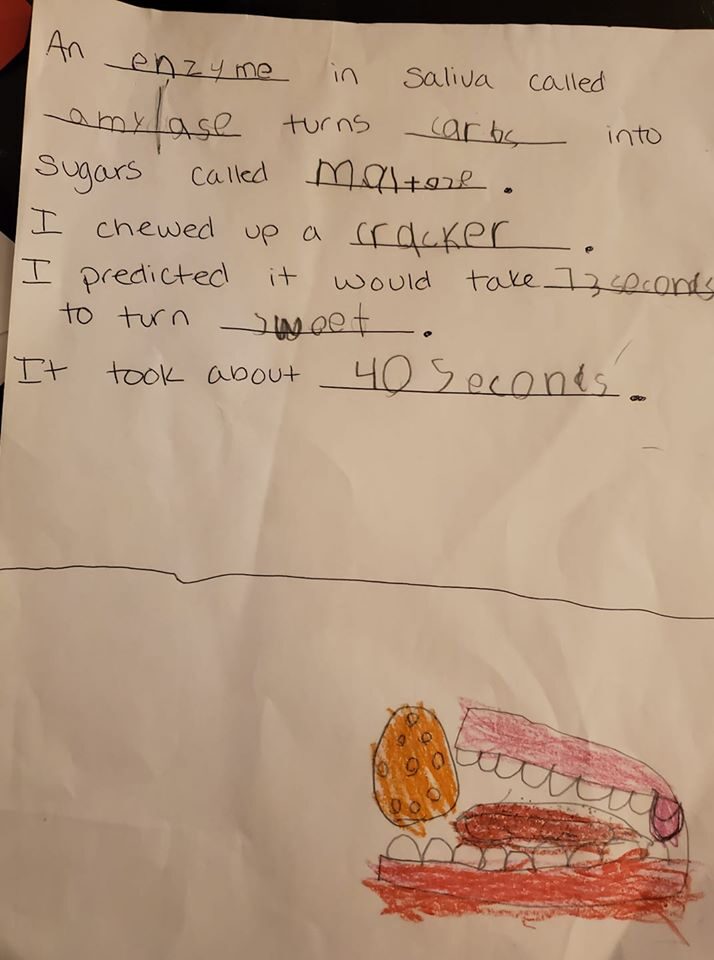 An enzyme in saliva called
amylase turns carbs into
sugars called maltose.
I chewed up a cracker.
I predicted it would take 73 seconds
to turn sweet.
It took about 40 Seconds.